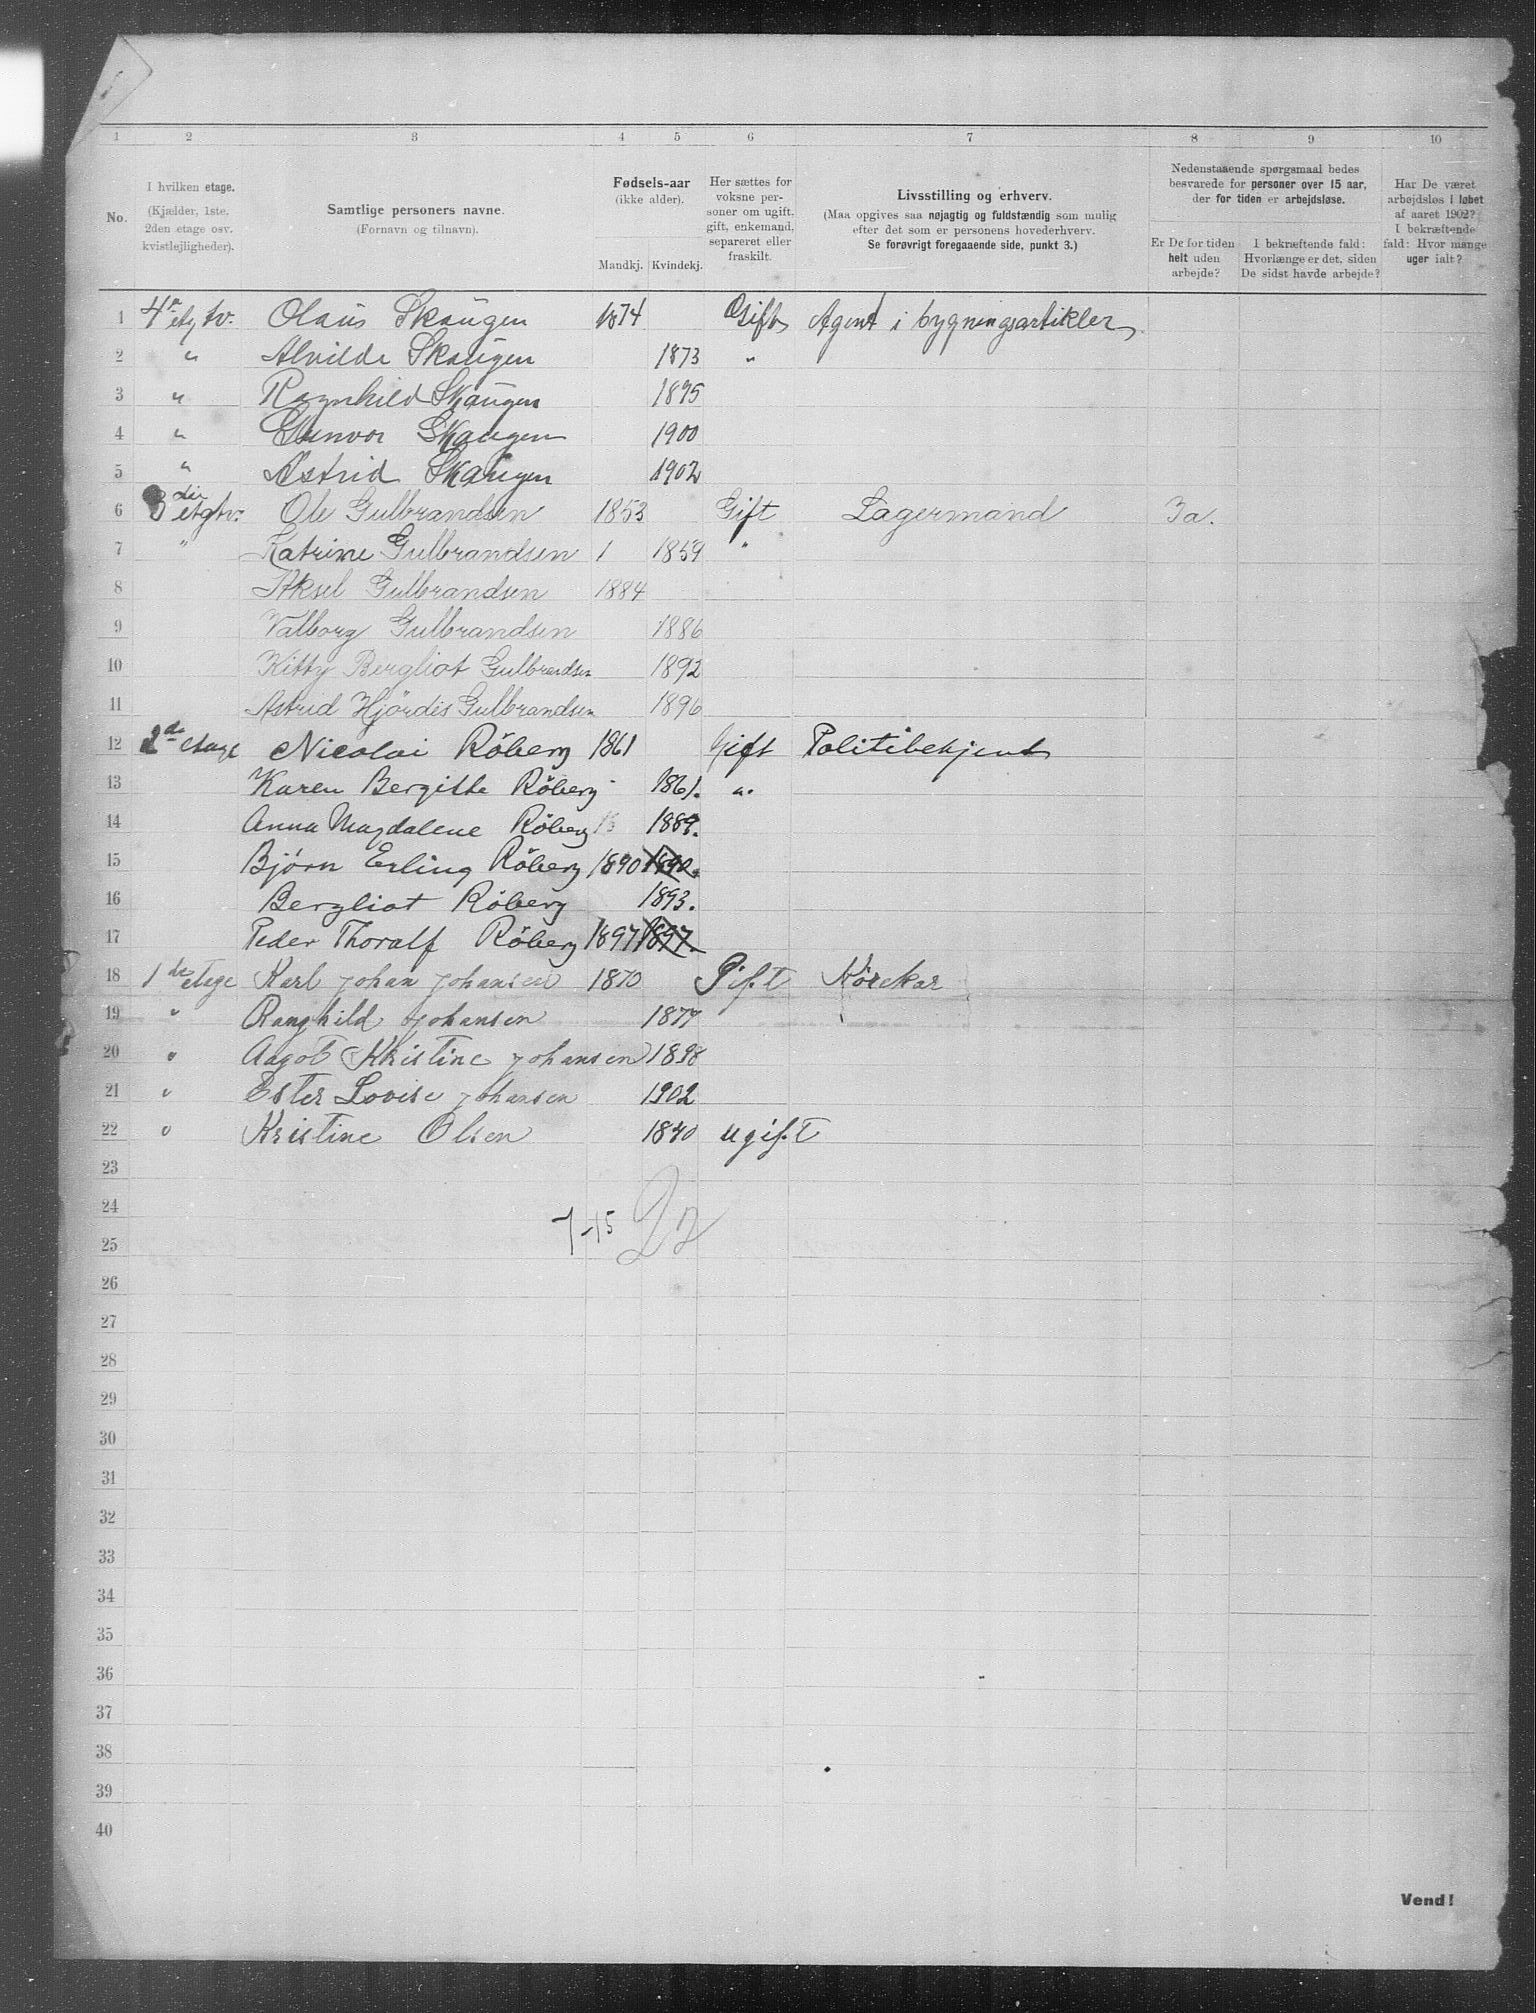 1 2 3 4 5 6 7 8 9 10
No.
I hvilken etage.
(Kjælder, 1ste, 2den etage osv. kvistlejligheder).
Samtlige personers navne.
(Fornavn og tilnavn).
Fødsels-aar
(ikke alder).
Mandkj. Kvindekj.
Her sættes for voksne personer om ugift, gift, enkemand, separeret eller fraskilt.
Livsstilling og erhverv.
(Maa opgives saa nøjagtig og fuldstændig som mulig efter det som er personens hovederhverv.
Se forøvrigt foregaaende side, punkt 3.)
Nedenstaaende spørgsmaal bedes besvarede for personer over 15 aar, der for tiden er arbejdsløse.
Er De for tiden helt uden arbejde?
I bekræftende fald: Hvorlænge er det, siden De sidst havde arbejde?
Har De været arbejdsløs i løbet af aaret 1902? I bekræftende fald: Hvor mange uger ialt?
1 4 etg tv. Olaus Skaugen 1874 Gift Agent i bygningsartikler
2 " Alvilde Skaugen 1873 "
3 " Ragnhild Skaugen 1895
4 " Gunvor Skaugen 1900
5 " Astrid Skaugen 1902
6 3die etg tv. Ole Gulbrandsen 1853 Gift Lagermand Ja.
7 " Katrine Gulbrandsen 1 1859 "
8 Aksel Gulbrandsen 1884
9 Valborg Gulbrandsen 1886
10 Kitty Bergliot Gulbrandsen 1892
11 Astrid Hjördis Gulbrandsen 1896
12 2de etage Nicolai Röberg 1861 Gift Politibetjent
13 Karen Bergitte Röberg 1861. "
14 Anna Magdalene Röberg 18 1889.
15 Bjørn Erling Röberg 1890 1890.
16 Bergliot Röberg 1893.
17 Peder Thoralf Röberg 1897 1897.
18 1ste etage Karl Johan Johansen 1870 Gift
19 " Ranghild Johansen 1877
20 " Aagot Kristine Johansen 1898
21 " Ester Lovise Johansen 1902
22 " Kristine Olsen 1840 ugift
23
24
7-15 22
25
26
27
28
29
30
31
32
33
34
35
36
37
38
39
40
Vend!